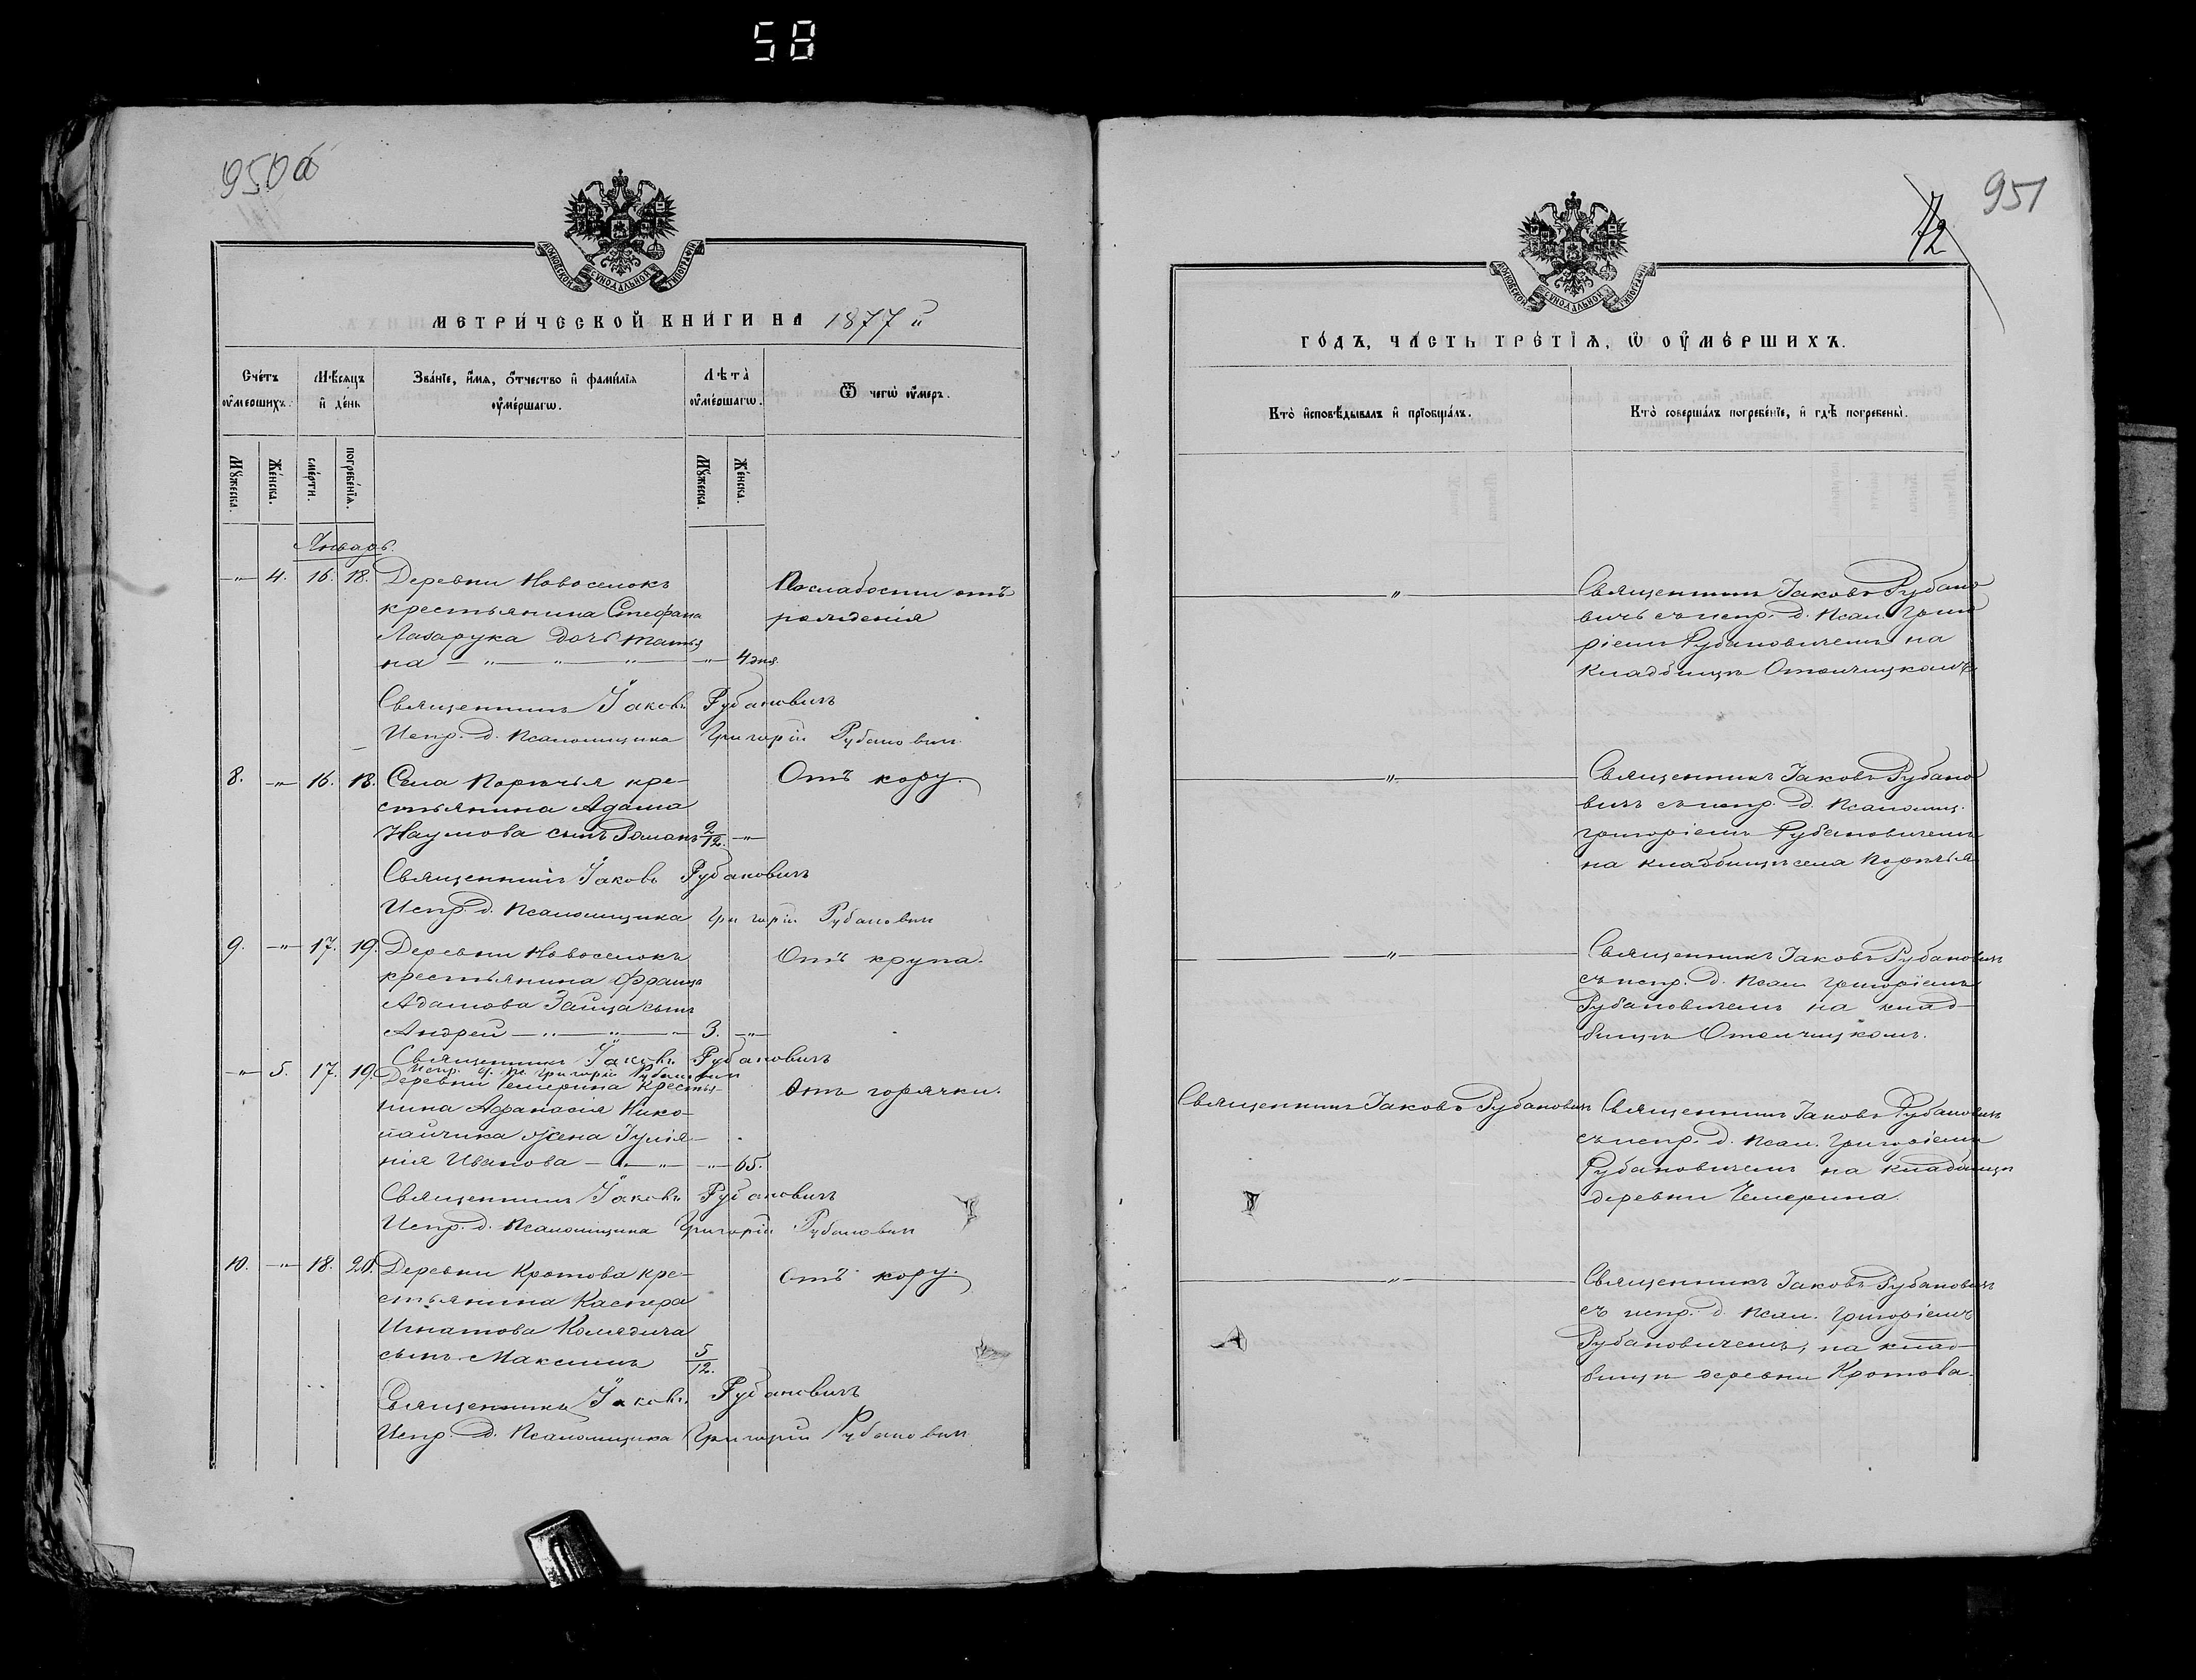 58
950 об
МОСКОВСКОЙ СѴНОДАЛЬНОЙ ТИПОГРАФІИ
МЕТРИ́ЧЕСКОЙ КНИ́ГИ НА 1877 й
Сче́тъ оу҆ме́ршихъ.
Мѣ́сяцъ и҆ де́нь
Зва́нїе, и҆́мѧ, ѻ҆́тчество и҆ фами́лїѧ оу҆ме́ршагѡ.
Лѣ́та̀ оу҆ме́ршагѡ.
Ѿ чегѡ̀ оу҆́меръ.
Мꙋ́жеска.
Же́нска.
сме́рти.
погребе́нїѧ.
Мꙋ́жеска.
Же́нска.
Январь.
—„— 4. 16. 18. Деревни Новоселокъ
крестьянина Стефана
Лазарука дочь Татья
на — „ — „ — „ — „ — 4 дня.
По слабости отъ
рожденія
Священникъ Іаковъ Рубановичъ
Испр. д. Псаломщика Григорій Рубанович
8. —„— 16. 18. Села Порѣчья кре-
стьянина Адама
Наумова сынъ Романъ 2/12. —„—
Отъ кору.
Священникъ Іаковъ Рубановичъ
Испр. д. Псаломщика Григорій Рубанович
9. —„— 17. 19. Деревни Новоселокъ
крестьянина Франца
Адамова Зайца сынъ
Андрей — „ — „ — „ — 3. —„—
Отъ крупа.
Священникъ Іаковъ Рубановичъ
Испр. д. Пс. Григорій Рубанович
—„— 5. 17. 19. Деревни Чемерина крестья-
нина Афанасія Нико-
лайчика жена Іулія-
нія Иванова — „ — „ — „ — 65.
Отъ горячки.
Священникъ Іаковъ Рубановичъ
Испр. д. Псаломщика Григорій Рубанович
10. —„— 18. 20. Деревни Кротова кре-
стьянина Каспера
Игнатова Колядича
сынъ Максимъ 5/12.
Отъ кору.
Священникъ Іаковъ Рубановичъ
Испр. д. Псаломщика Григорій Рубанович
72
951
МОСКОВСКОЙ СѴНОДАЛЬНОЙ ТИПОГРАФІИ
ГО́ДЪ, ЧА́СТЬ ТРЕ́ТЇѦ, Ѡ҆ ОУ҆МЕ́РШИХЪ.
Кто̀ и҆сповѣ́дывалъ и҆ прїѡбща́лъ.
Кто̀ соверша́лъ погребе́нїе, и҆ гдѣ̀ погребены̀.
„ Священникъ Іаковъ Рубано
вичъ съ испр. д. Псал. Григо
ріемъ Рубановичемъ на
кладбищѣ Отолчицкомъ
„ Священникъ Іаковъ Рубано
вичъ съ испр. д. Псаломщ.
Григоріемъ Рубановичемъ
на кладбищѣ села Порѣчья
„ Священникъ Іаковъ Рубановичъ
съ испр. д. Псал. Григоріемъ
Рубановичемъ на клад-
бищѣ Отолчицкомъ.
Священникъ Іаковъ Рубановичъ Священникъ Іаковъ Рубановичъ
съ испр. д. Псал. Григоріемъ
Рубановичемъ на кладбищѣ
деревни Чемерина.
„ Священникъ Іаковъ Рубановичъ
съ испр. д. Псал. Григоріемъ
Рубановичемъ, на клад-
бищѣ деревни Кротова.